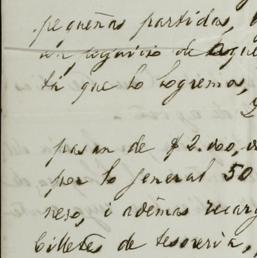 pequeñas partidas,
perjuicio de aque
ta que lo logremos,
pasan de $ 2.000,
por lo general 50
nero, i además recar
billetes de tesorería,